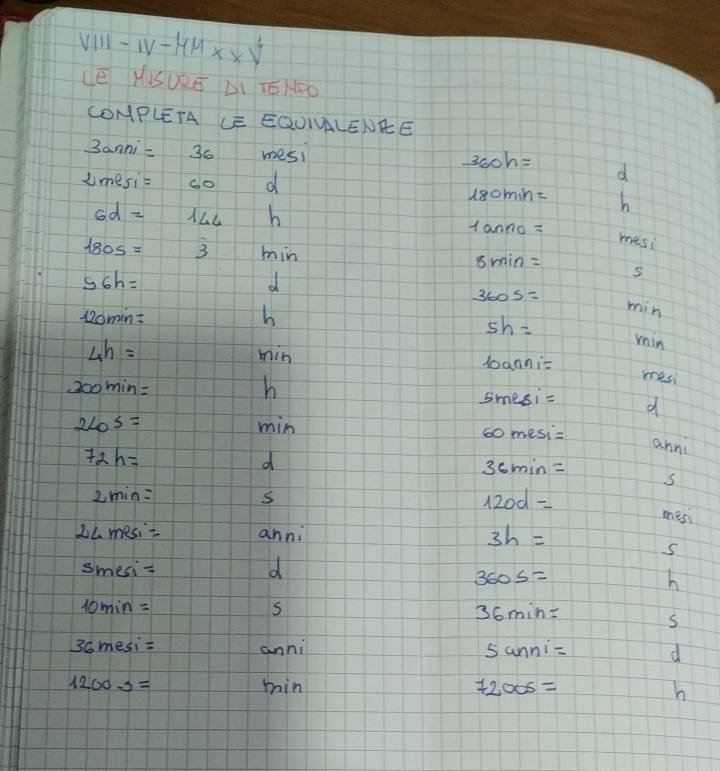 VIII - IV - MMXXV
LE MISURE DI TEMPO
COMPLETA LE EQUIVALENZE
3anni = 36 mesi
2mesi = 60 d
6d = 144 h
180s = 3 min
96h = d
120min = h
4h = min
300min = h
240s = min
72h = d
2min = s
24mesi = anni
5mesi = d
10min = s
36mesi = anni
1200s = min
360h = d
180min = h
1anno = mesi
8min = s
360s = min
5h = min
10anni = mesi
5mesi = d
60mesi = anni
36min = s
120d = mesi
3h = s
360s = h
36min = s
5anni = d
7200s = h